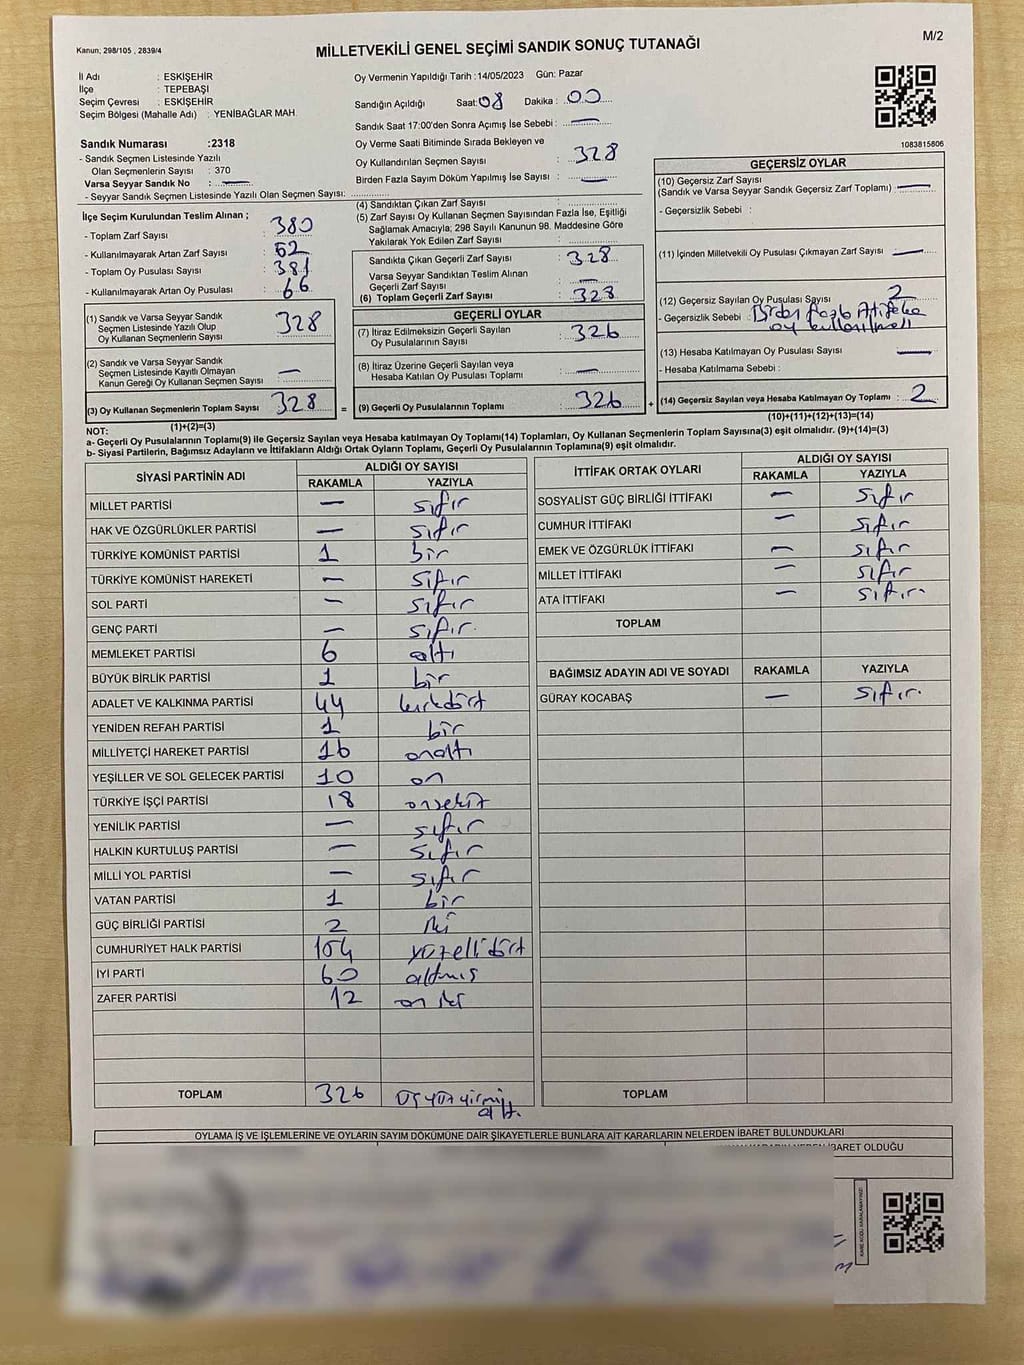 Kanun; 298/105 , 2839/4
M/2
MİLLETVEKİLİ GENEL SEÇİMİ SANDIK SONUÇ TUTANAĞI
İl Adı : ESKİŞEHİR
İlçe : TEPEBAŞI
Seçim Çevresi : ESKİŞEHİR
Seçim Bölgesi (Mahalle Adı) : YENİBAĞLAR MAH.
Sandık Numarası :2318
- Sandık Seçmen Listesinde Yazılı
Olan Seçmenlerin Sayısı : 370
Varsa Seyyar Sandık No : —
- Seyyar Sandık Seçmen Listesinde Yazılı Olan Seçmen Sayısı:
Oy Vermenin Yapıldığı Tarih :14/05/2023 Gün: Pazar
Sandığın Açıldığı Saat: 08 Dakika : 00
Sandık Saat 17:00'den Sonra Açımış İse Sebebi : —
Oy Verme Saati Bitiminde Sırada Bekleyen ve
Oy Kullandırılan Seçmen Sayısı : 328
Birden Fazla Sayım Döküm Yapılmış İse Sayısı : —
1083815806
İlçe Seçim Kurulundan Teslim Alınan ;
- Toplam Zarf Sayısı : 380
- Kullanılmayarak Artan Zarf Sayısı : 52
- Toplam Oy Pusulası Sayısı : 381
- Kullanılmayarak Artan Oy Pusulası : 66
(1) Sandık ve Varsa Seyyar Sandık
Seçmen Listesinde Yazılı Olup
Oy Kullanan Seçmenlerin Sayısı : 328
(2) Sandık ve Varsa Seyyar Sandık
Seçmen Listesinde Kayıtlı Olmayan
Kanun Gereği Oy Kullanan Seçmen Sayısı : —
(3) Oy Kullanan Seçmenlerin Toplam Sayısı : 328
(1)+(2)=(3)
(4) Sandıktan Çıkan Zarf Sayısı :
(5) Zarf Sayısı Oy Kullanan Seçmen Sayısından Fazla İse, Eşitliği
Sağlamak Amacıyla; 298 Sayılı Kanunun 98. Maddesine Göre
Yakılarak Yok Edilen Zarf Sayısı :
Sandıkta Çıkan Geçerli Zarf Sayısı : 328
Varsa Seyyar Sandıktan Teslim Alınan
Geçerli Zarf Sayısı : —
(6) Toplam Geçerli Zarf Sayısı : 328
GEÇERLİ OYLAR
(7) İtiraz Edilmeksizin Geçerli Sayılan
Oy Pusulalarının Sayısı : 326
(8) İtiraz Üzerine Geçerli Sayılan veya
Hesaba Katılan Oy Pusulası Toplamı : —
= (9) Geçerli Oy Pusulalarının Toplamı : 326
GEÇERSİZ OYLAR
(10) Geçersiz Zarf Sayısı
(Sandık ve Varsa Seyyar Sandık Geçersiz Zarf Toplamı) : —
- Geçersizlik Sebebi :
(11) İçinden Milletvekili Oy Pusulası Çıkmayan Zarf Sayısı : —
(12) Geçersiz Sayılan Oy Pusulası Sayısı : 2
- Geçersizlik Sebebi : Birden fazla
oy
(13) Hesaba Katılmayan Oy Pusulası Sayısı : —
- Hesaba Katılmama Sebebi :
+ (14) Geçersiz Sayılan veya Hesaba Katılmayan Oy Toplamı : 2
(10)+(11)+(12)+(13)=(14)
NOT:
a- Geçerli Oy Pusulalarının Toplamı(9) ile Geçersiz Sayılan veya Hesaba katılmayan Oy Toplamı(14) Toplamları, Oy Kullanan Seçmenlerin Toplam Sayısına(3) eşit olmalıdır. (9)+(14)=(3)
b- Siyasi Partilerin, Bağımsız Adayların ve İttifakların Aldığı Ortak Oyların Toplamı, Geçerli Oy Pusulalarının Toplamına(9) eşit olmalıdır.
SİYASİ PARTİNİN ADI ALDIĞI OY SAYISI
RAKAMLA YAZIYLA
MİLLET PARTİSİ — sıfır
HAK VE ÖZGÜRLÜKLER PARTİSİ — sıfır
TÜRKİYE KOMÜNİST PARTİSİ 1 bir
TÜRKİYE KOMÜNİST HAREKETİ — sıfır
SOL PARTİ — sıfır
GENÇ PARTİ — sıfır.
MEMLEKET PARTİSİ 6 altı
BÜYÜK BİRLİK PARTİSİ 1 bir
ADALET VE KALKINMA PARTİSİ 44 kırkdört
YENİDEN REFAH PARTİSİ 1 bir
MİLLİYETÇİ HAREKET PARTİSİ 16 onaltı
YEŞİLLER VE SOL GELECEK PARTİSİ 10 on
TÜRKİYE İŞÇİ PARTİSİ 18 onsekiz
YENİLİK PARTİSİ — sıfır
HALKIN KURTULUŞ PARTİSİ — sıfır
MİLLİ YOL PARTİSİ — sıfır
VATAN PARTİSİ 1 bir
GÜÇ BİRLİĞİ PARTİSİ 2 iki
CUMHURİYET HALK PARTİSİ 154 yüzellidört
İYİ PARTİ 60 altmış
ZAFER PARTİSİ 12 on iki
TOPLAM 326 üçyüzyirmi
altı.
İTTİFAK ORTAK OYLARI ALDIĞI OY SAYISI
RAKAMLA YAZIYLA
SOSYALİST GÜÇ BİRLİĞİ İTTİFAKI — sıfır
CUMHUR İTTİFAKI — sıfır
EMEK VE ÖZGÜRLÜK İTTİFAKI — sıfır
MİLLET İTTİFAKI — sıfır
ATA İTTİFAKI — sıfır.
TOPLAM
BAĞIMSIZ ADAYIN ADI VE SOYADI RAKAMLA YAZIYLA
GÜRAY KOCABAŞ — sıfır.
TOPLAM
OYLAMA İŞ VE İŞLEMLERİNE VE OYLARIN SAYIM DÖKÜMÜNE DAİR ŞİKAYETLERLE BUNLARA AİT KARARLARIN NELERDEN İBARET BULUNDUKLARI
İBARET OLDUĞU
KARE KODU KARALAMAYINIZ!